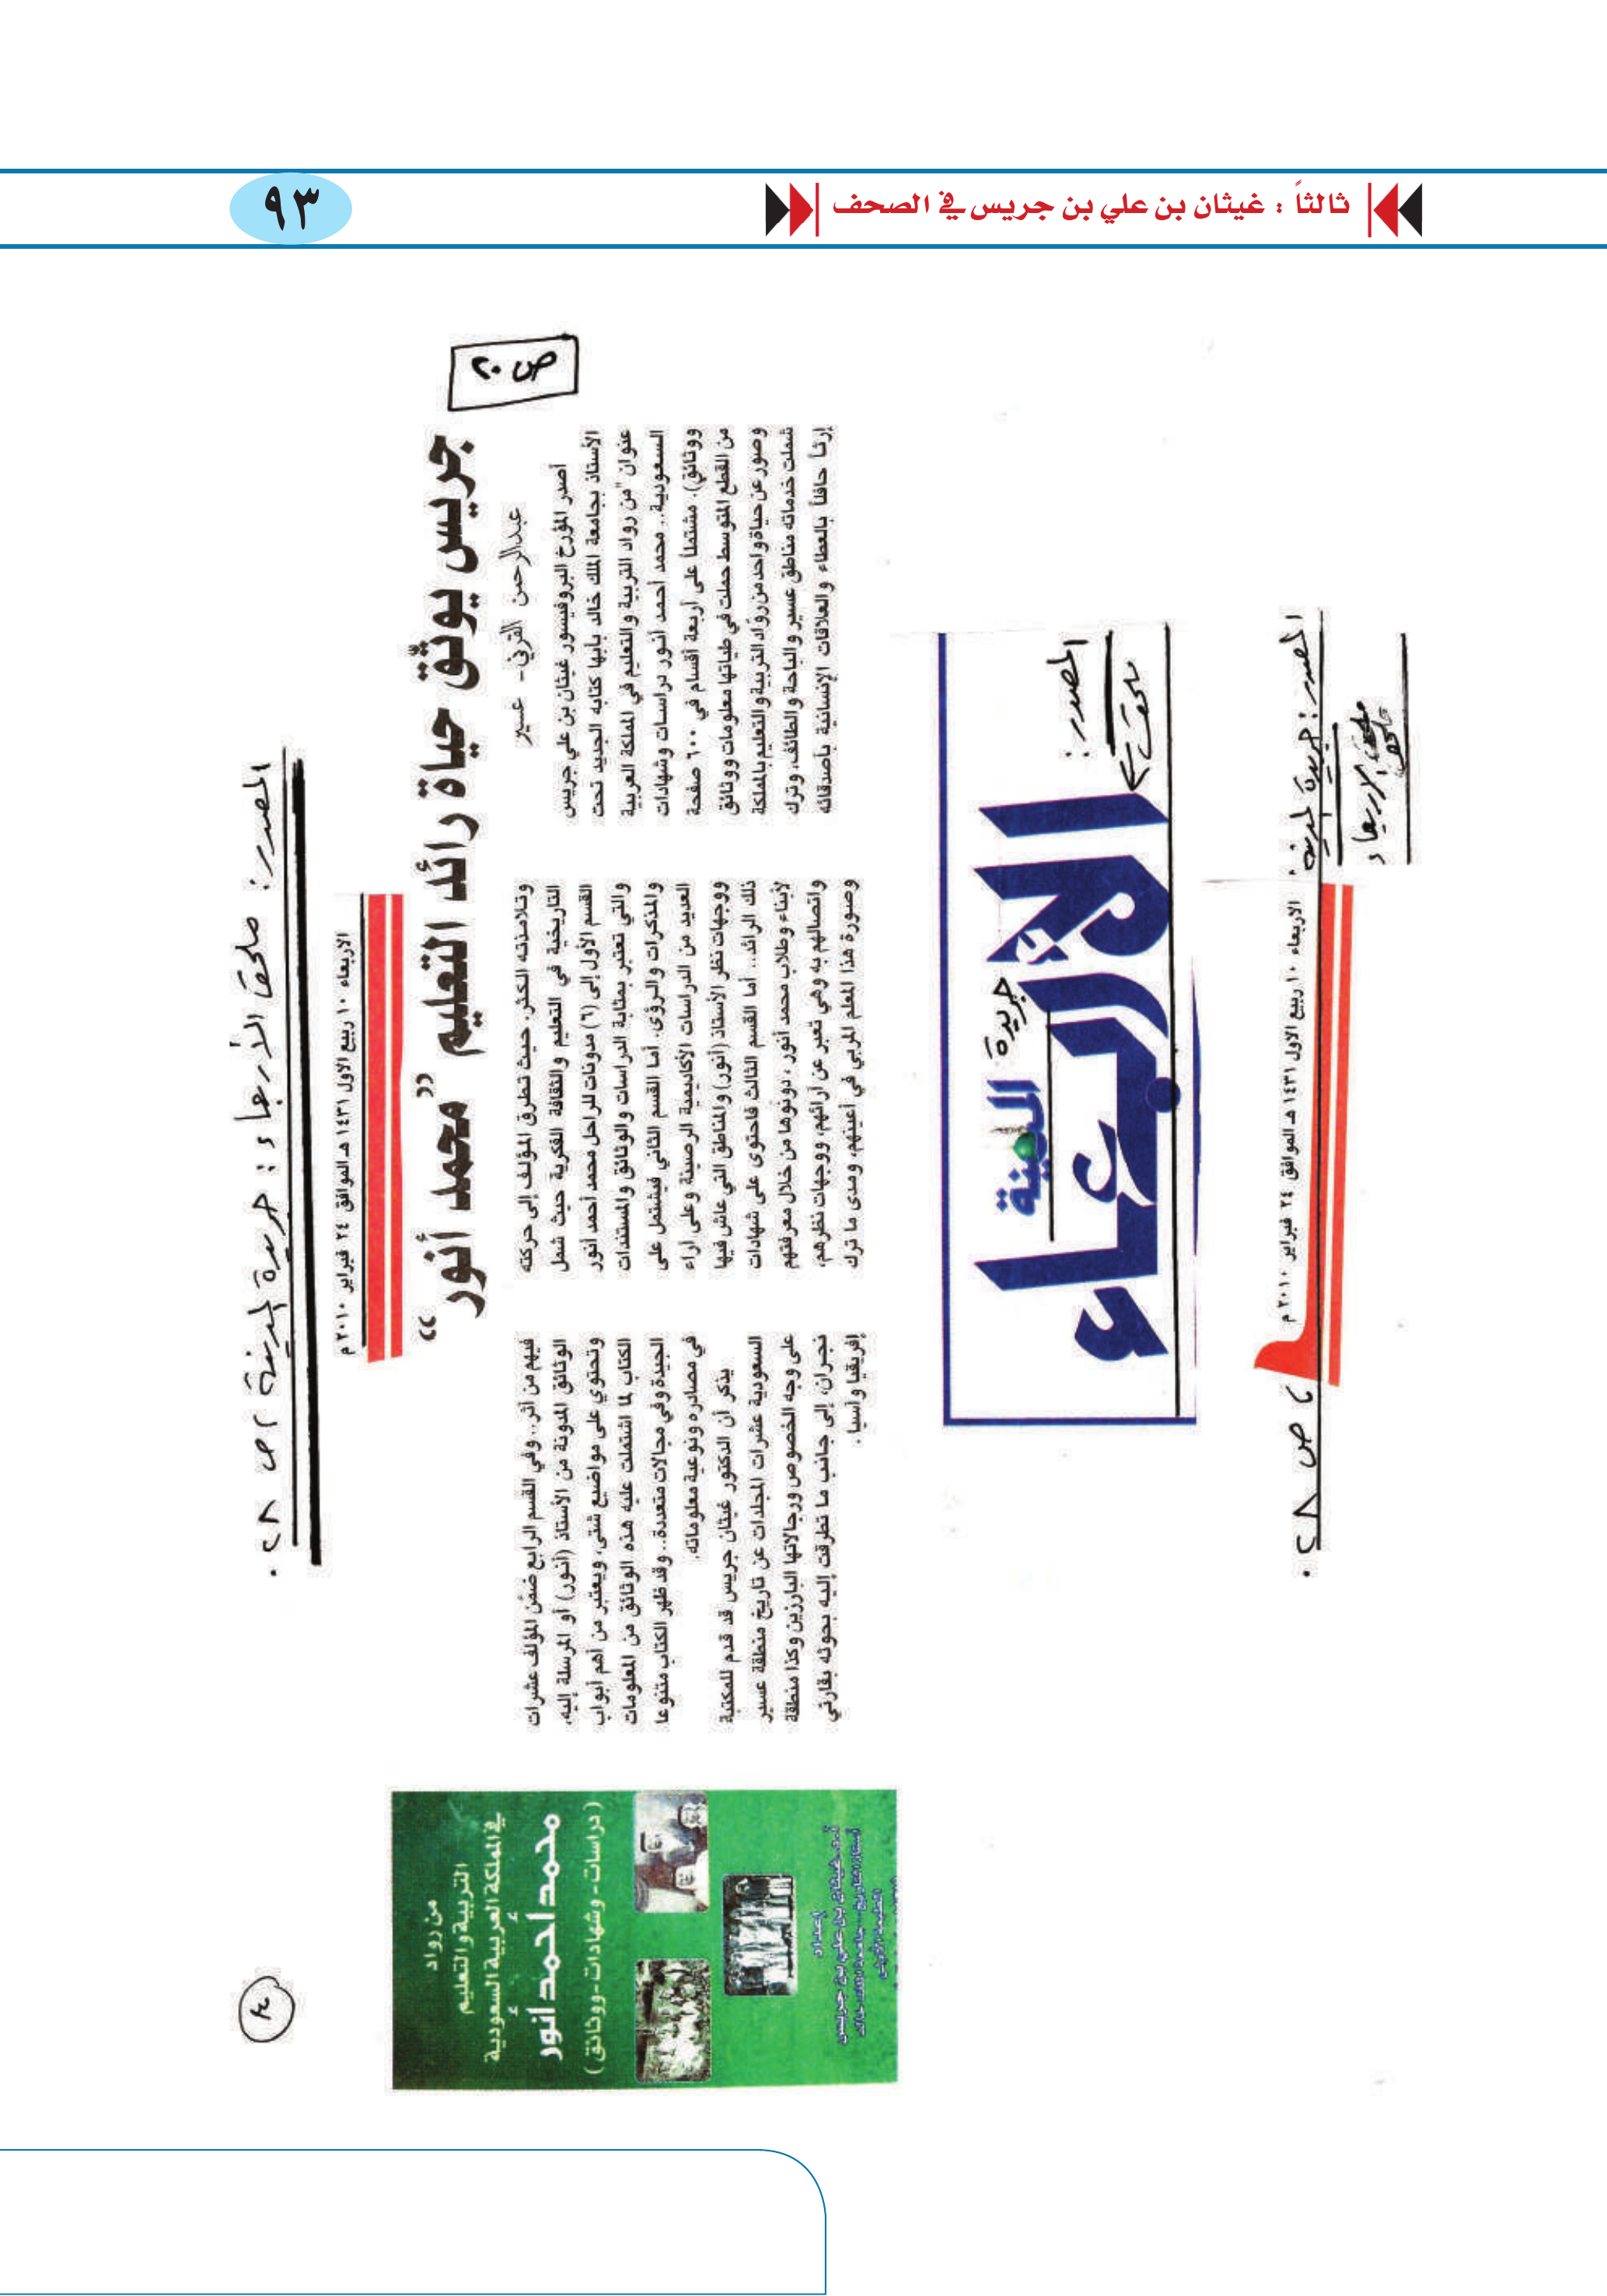 ثالثاً : غيثان بن علي بن جريس في الصحف
٩٣
المصدر: ملحق الأربعاء : جريدة المدينة ، ص ٢٨ .
الاربعاء ١٠ ربيع الاول ١٤٣١ هـ الموافق ٢٤ فبراير ٢٠١٠ م
ص ٢٠
جريس يوثّق حياة رائد التعليم "محمد أنور"
عبدالرحمن القرني- عسير
أصدر المؤرخ البروفيسور غيثان بن علي جريس
الأستاذ بجامعة الملك خالد بأبها كتابه الجديد تحت
عنوان "من رواد التربية والتعليم في المملكة العربية
السعودية.. محمد أحمد أنور دراسات وشهادات
ووثائق)، مشتملاً على أربعة أقسام في ٦٠٠ صفحة
من القطع المتوسط حملت في طياتها معلومات ووثائق
وصور عن حياة واحد من روّاد التربية والتعليم بالمملكة
شملت خدماته مناطق عسير والباحة والطائف، وترك
إرثاً حافلاً بالعطاء والعلاقات الإنسانية بأصدقائه
وتلامذته الكثر. حيث تطرق المؤلف إلى حركته
التاريخية في التعليم والثقافة الفكرية حيث شمل
القسم الأول إلى (٦) مدونات للراحل محمد أحمد أنور
والتي تعتبر بمثابة الدراسات والوثائق والمستندات
والمذكرات والرؤى. أما القسم الثاني فيشتمل على
العديد من الدراسات الأكاديمية الرصينة وعلى آراء
ووجهات نظر الأستاذ (أنور) والمناطق التي عاش فيها
ذلك الرائد.. أما القسم الثالث فاحتوى على شهادات
لأبناء وطلاب محمد أنور ، دونوها من خلال معرفتهم
واتصالهم به وهي تعبر عن آرائهم، ووجهات نظرهم،
وصورة هذا المعلم المربي في أعينهم، ومدى ما ترك
فيهم من أثر.. وفي القسم الرابع ضمّن المؤلف عشرات
الوثائق المدونة من الأستاذ (أنور) أو المرسلة إليه،
وتحتوي على مواضيع شتى، ويعتبر من أهم أبواب
الكتاب لما اشتملت عليه هذه الوثائق من المعلومات
الجيدة وفي مجالات متعددة.. وقد ظهر الكتاب متنوعا
في مصادره ونوعية معلوماته.
يذكر أن الدكتور غيثان جريس قد قدم للمكتبة
السعودية عشرات المجلدات عن تاريخ منطقة عسير
على وجه الخصوص ورجالاتها البارزين وكذا منطقة
نجران، إلى جانب ما تطرقت إليه بحوثه بقارتي
إفريقيا وآسيا .
من رواد
التربية والتعليم
في المملكة العربية السعودية
محمد أحمد أنور
( دراسات - وشهادات - ووثائق )
إعداد
أ.د. غيثان بن علي بن جريس
المصدر :
ملحق
الأربعاء
جريدة
المدينة
المصدر : جريدة المدينة .
ملحق الأربعاء
الاربعاء ١٠ ربيع الاول ١٤٣١ هـ الموافق ٢٤ فبراير ٢٠١٠ م
، ص ٢٨ .